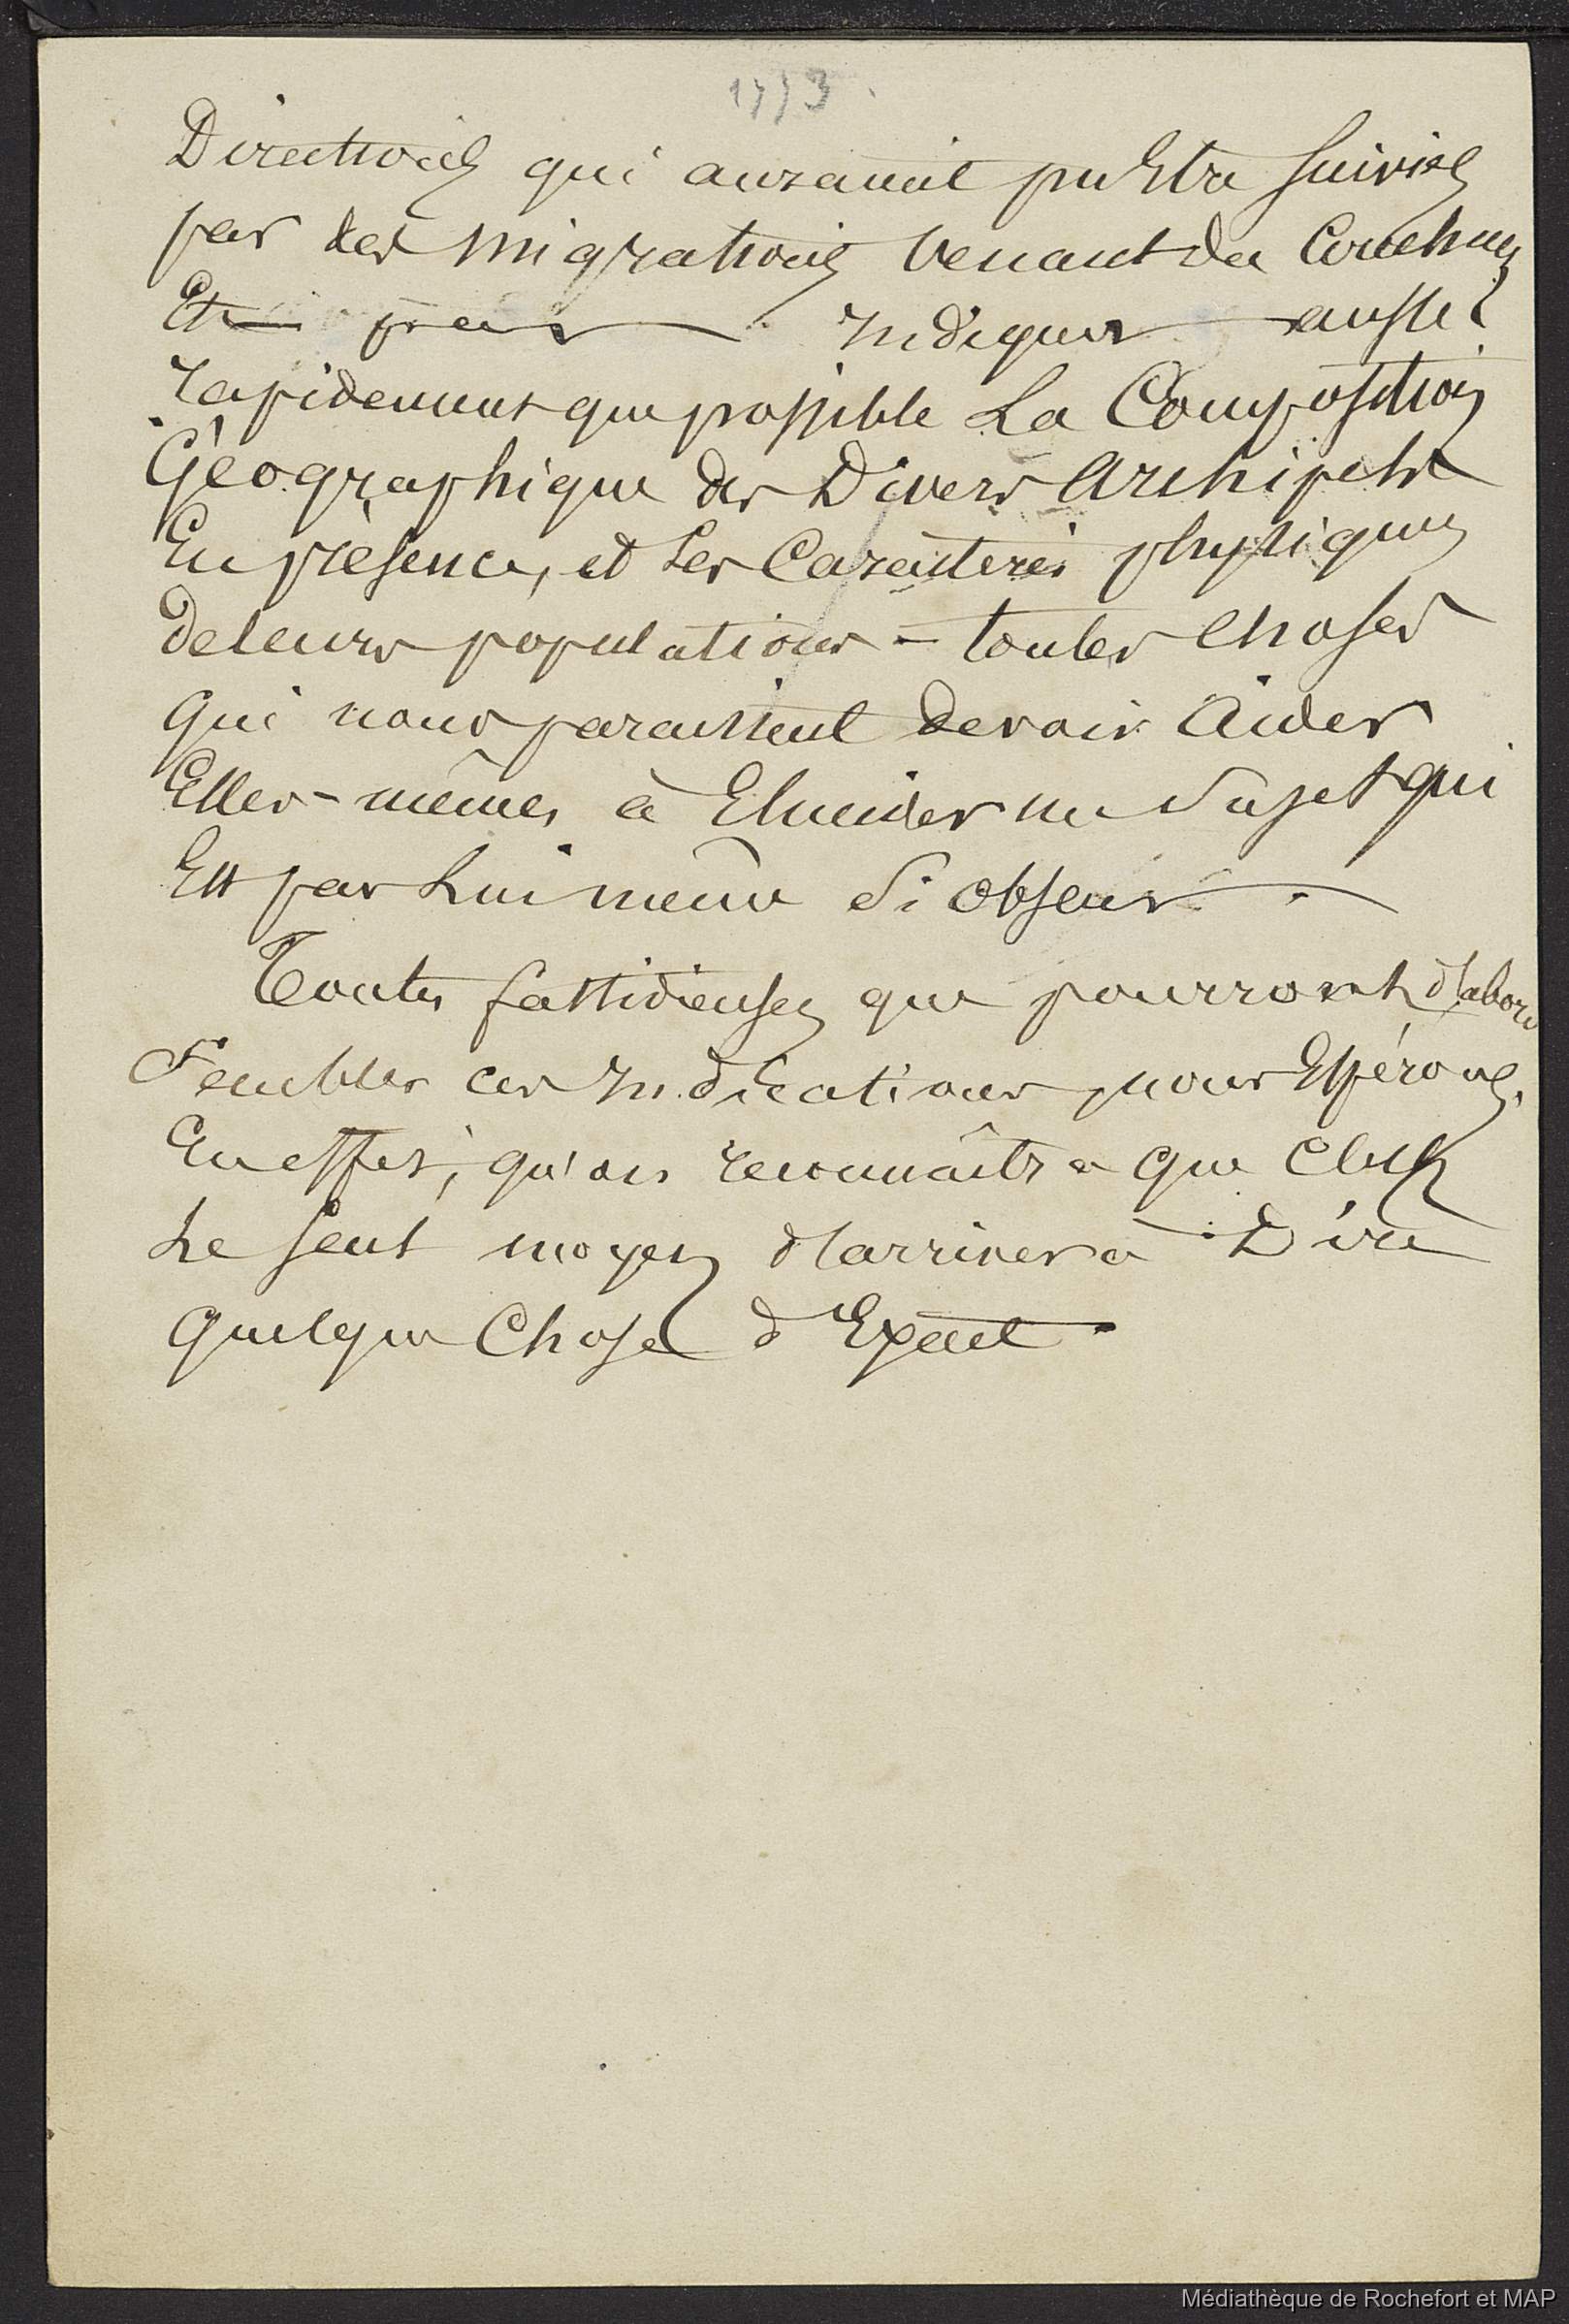 1773.
Directions qui auraient pu Etre suivies
par des migrations venant du Couchant
Et par Indiquer aussi
rapidement que possible La Composition
Géographique des Divers Archipels
En présence, et Les Caractères physiques
de leurs populations - toutes choses
qui nous paraissent devoir Aider
Elles-mêmes à Elucider un Sujet qui
Est par Lui même Si obscur.
Toutes fastidieuses que pourront d'abord
Sembler ces Indications, nous Espérons,
En effet, qu'on reconnaîtra que C'est
Le seul moyen d'arriver à Dire
quelque Chose d'Exact.
Médiathèque de Rochefort et MAP